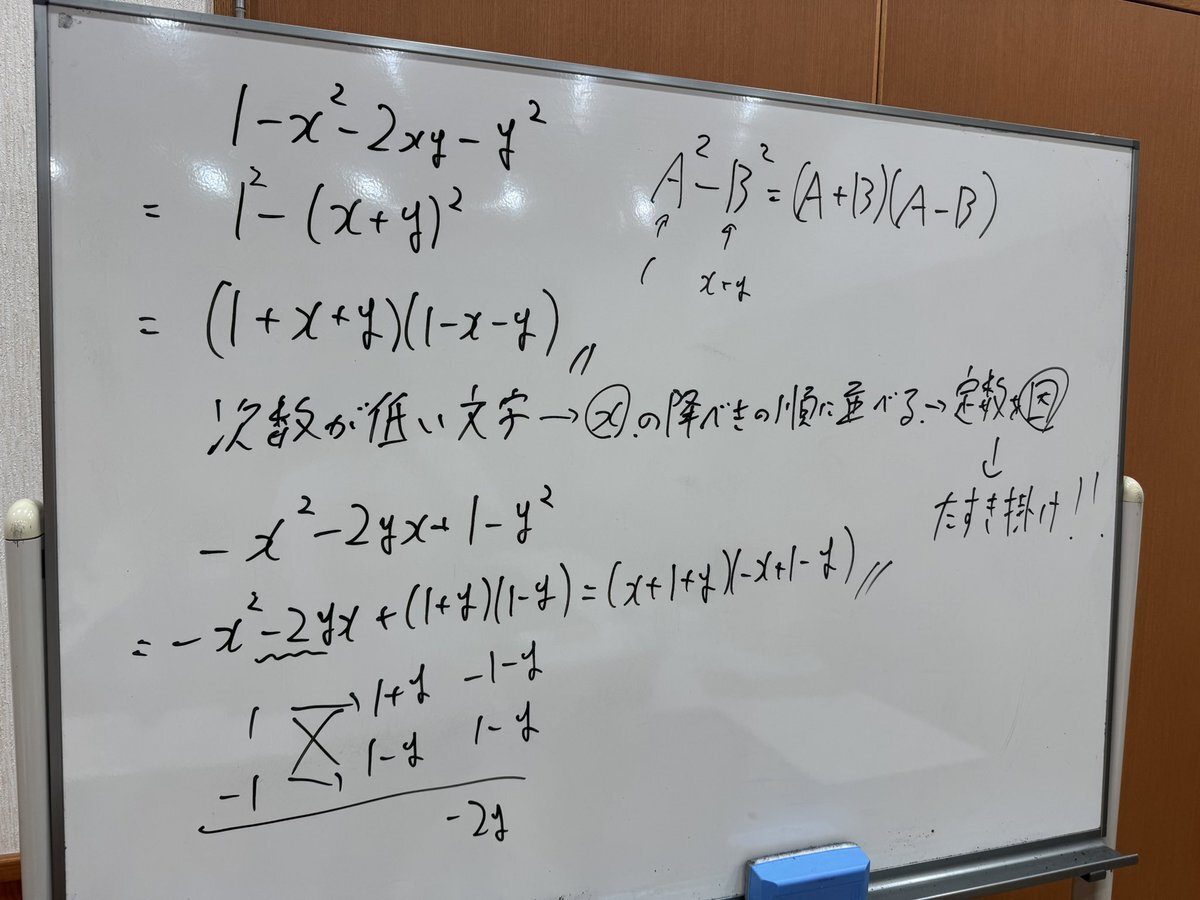 1-x²-2xy-y²
= 1²-(x+y)²
= (1+x+y)(1-x-y)〃
A²-B²=(A+B)(A-B)
↑ ↑
1 x+y
次数が低い文字→ⓧの降べきの順に並べる→定数を因
↓
たすき掛け!!
-x²-2yx+1-y²
=-x²-2yx+(1+y)(1-y)=(x+1+y)(-x+1-y)〃
1 1+y -1-y
-1 1-y 1-y
-2y